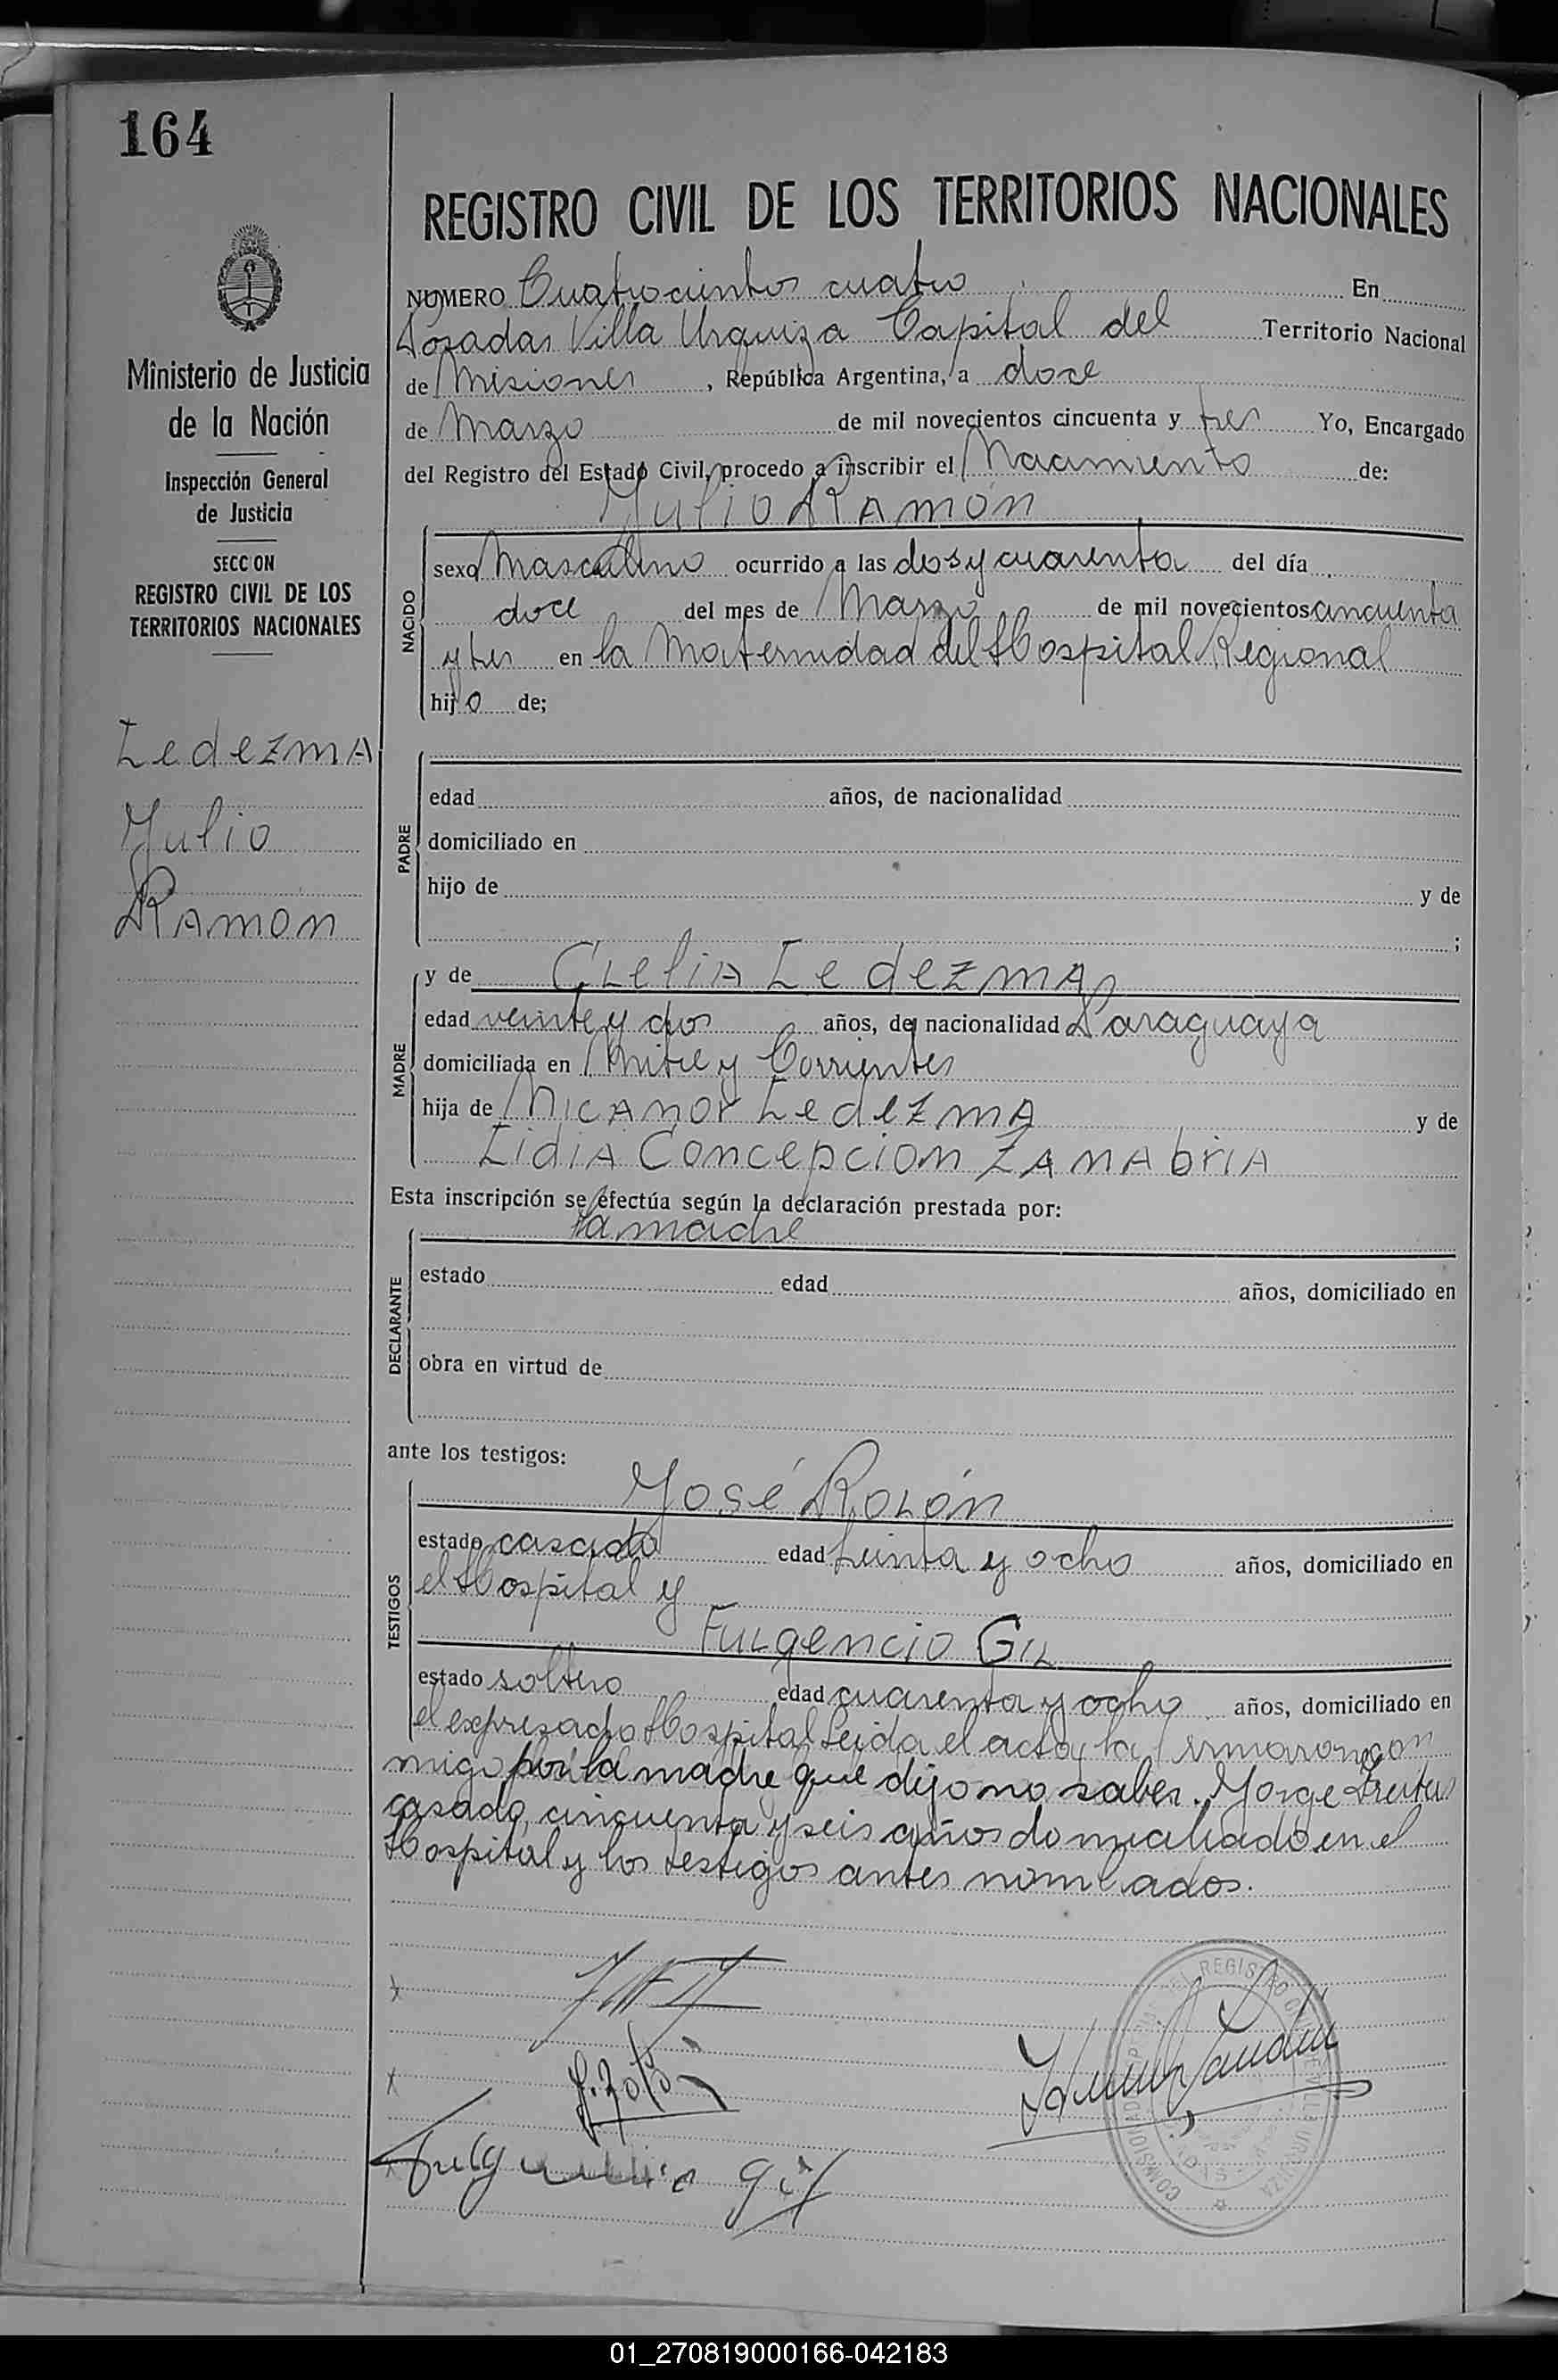 164
REGISTRO CIVIL DE LOS TERRITORIOS NACIONALES
Ministerio de Justicia
de la Nación
Inspección General
de Justicia
SECCION
REGISTRO CIVIL DE LOS
TERRITORIOS NACIONALES
Ledezma
Julio
Ramon
NUMERO Cuatrocientos cuatro En
Posadas Villa Urquiza Capital del Territorio Nacional
de Misiones, República Argentina, a doce
de Marzo de mil novecientos cincuenta y tres Yo, Encargado
del Registro del Estado Civil, procedo a inscribir el Nacimiento de:
Julio Ramón
NACIDO
sexo Masculino ocurrido a las dos y cuarenta del día
doce del mes de Marzo de mil novecientos cincuenta
y tres en la Maternidad del Hospital Regional
hijo de;
PADRE
edad años, de nacionalidad
domiciliado en
hijo de y de
;
MADRE
y de Clelia Ledezma
edad veinte y dos años, de nacionalidad Paraguaya
domiciliada en Mitre y Corrientes
hija de Nicanor Ledezma y de
Lidia Concepcion Zanabria
Esta inscripción se efectúa según la declaración prestada por:
la madre
DECLARANTE
estado edad años, domiciliado en
obra en virtud de
ante los testigos:
TESTIGOS
José Rolón
estado casado edad treinta y ocho años, domiciliado en
el Hospital y
Fulgencio Gil
estado soltero edad cuarenta y ocho años, domiciliado en
el expresado Hospital Leida el acta, la firmaron con
migo por la madre que dijo no saber. Jorge Freites
casado, cincuenta y seis años domiciliado en el
Hospital y los testigos antes nombrados.
J. Rolón
Fulgencio Gil
01_270819000166-042183